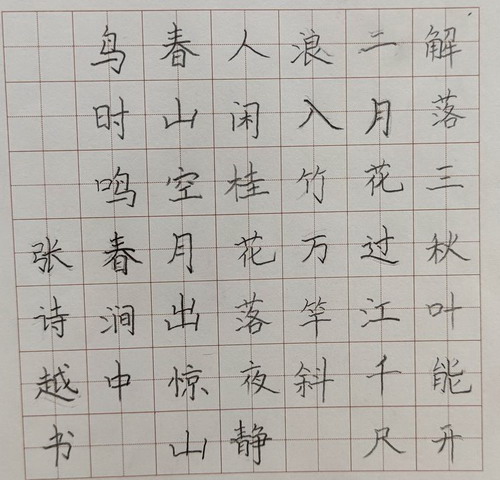 解落三秋叶能开
二月花过江千尺
浪入竹万竿斜
人闲桂花落夜静
春山空月出惊山
鸟时鸣春涧中
张诗越书